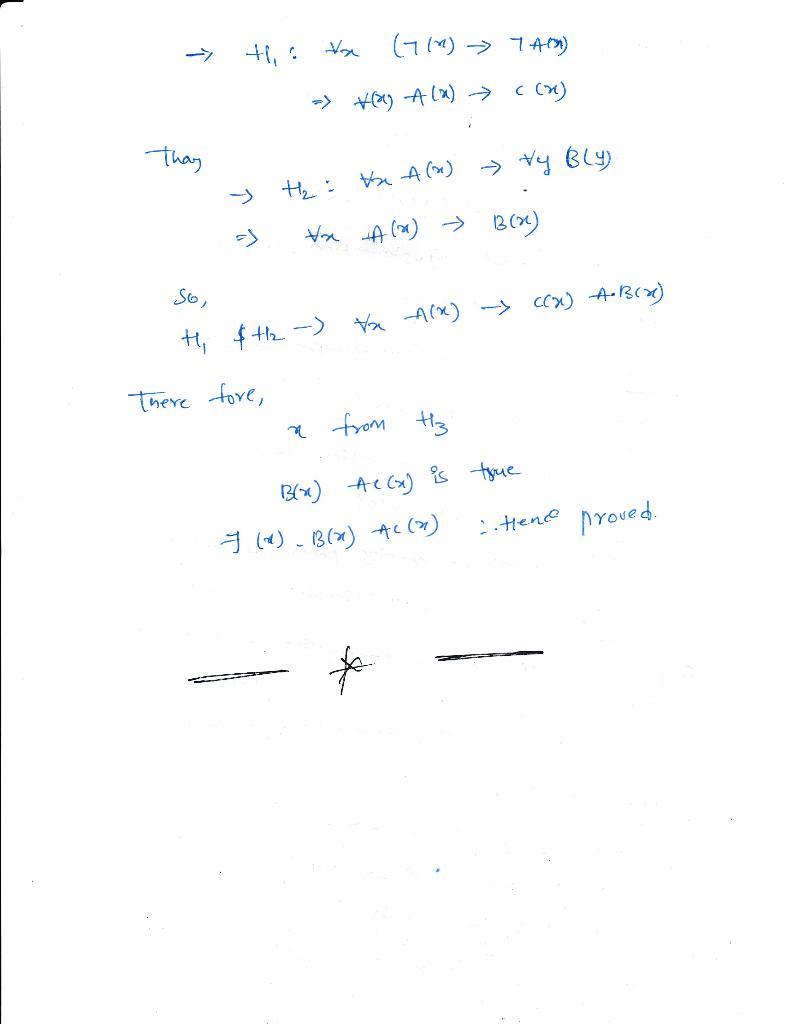 → H₁ : ∀x (¬(x) → ¬A(x)
⇒ ∀(x) A(x) → C(x)
Thay
→ H₂ : ∀x A(x) → ∀y B(y)
⇒ ∀x A(x) → B(x)
So,
H₁ & H₂ → ∀x A(x) → C(x) ∧ B(x)
There fore,
x from H₃
B(x) ∧ C(x) is true
∃ (x) - B(x) ∧ C(x) ∴ Hence proved.